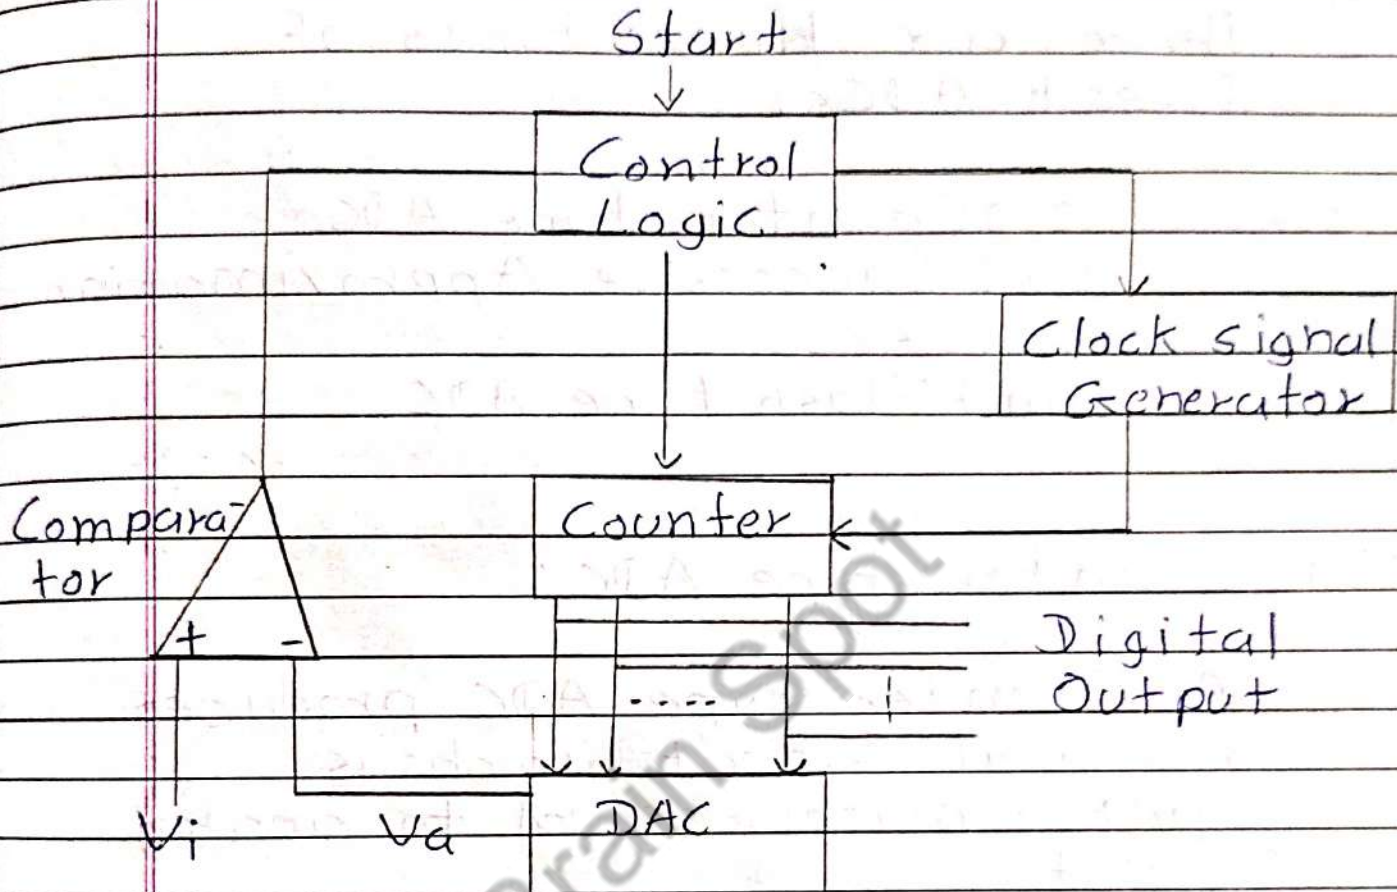 Start
Control
Logic
Clock signal
Generator
Compara-
tor
Counter
+ -
Digital
Output
Vi
Va
DAC
Brain Spot